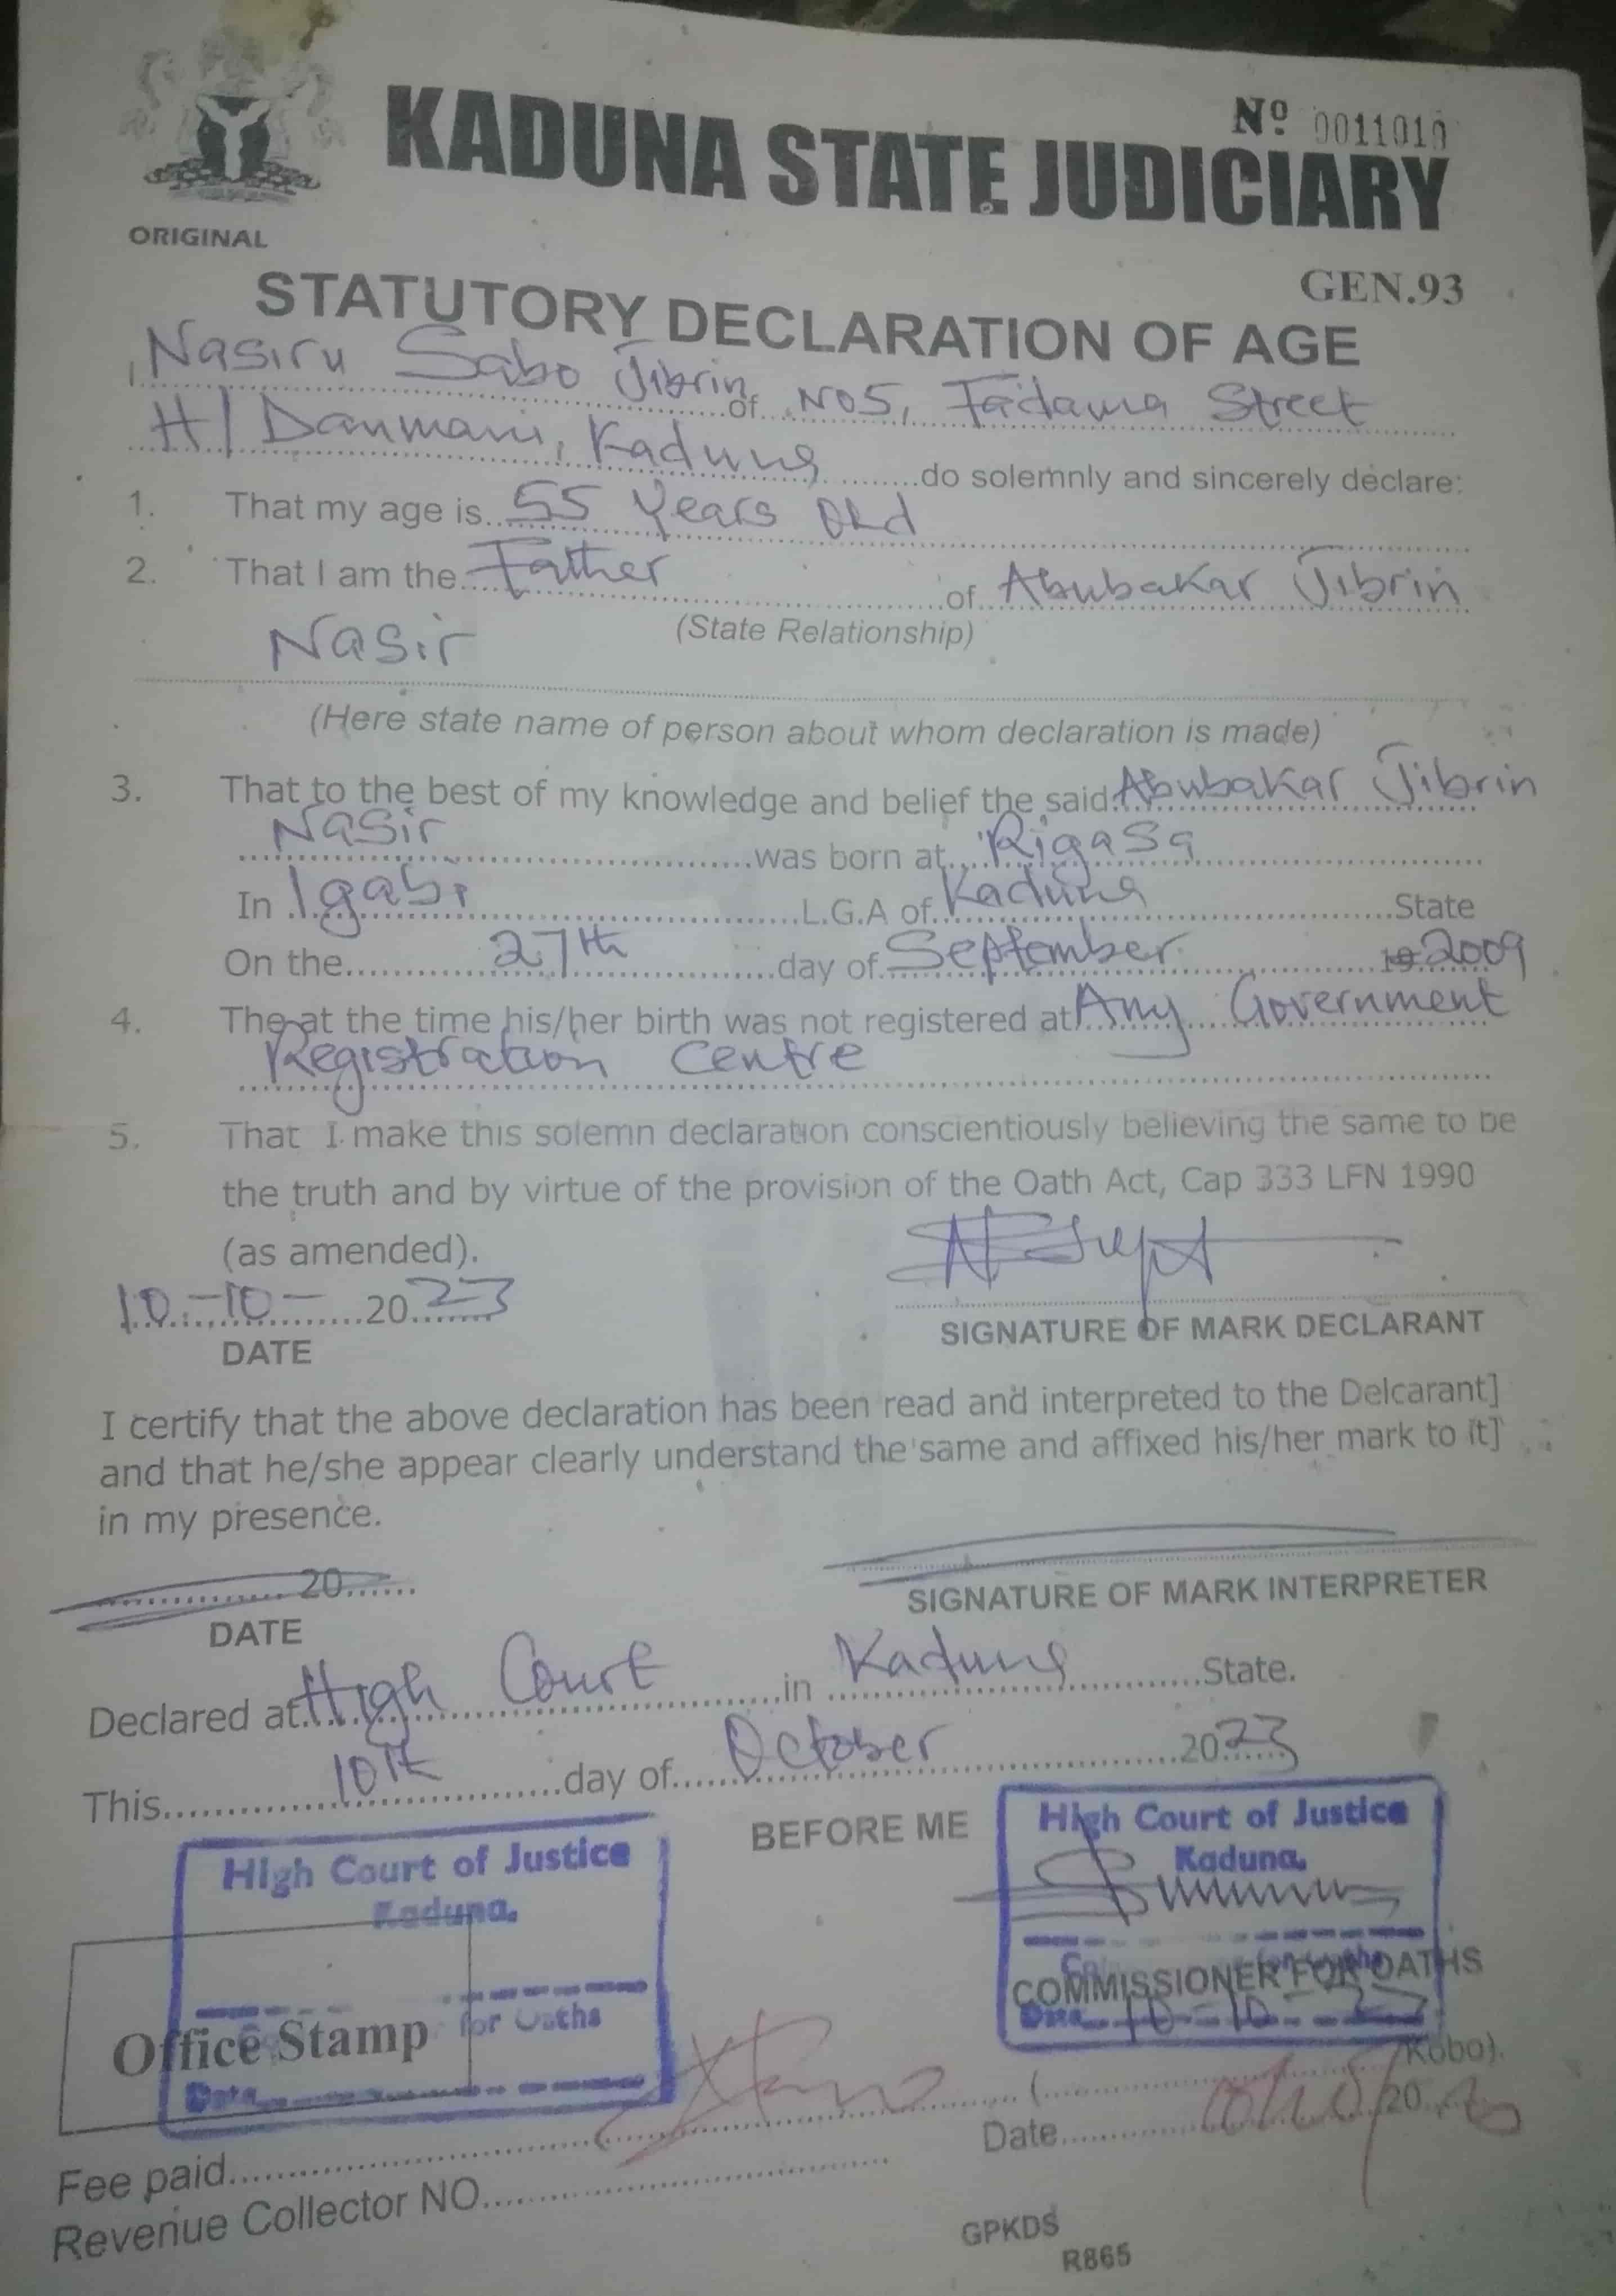 Nº 0011010
KADUNA STATE JUDICIARY
ORIGINAL
GEN.93
STATUTORY DECLARATION OF AGE
I, Nasiru Sabo Jibrin of No5, Fadama Street
H/Danmani, Kaduna do solemnly and sincerely declare:
1. That my age is 55 years old
2. That I am the Father of Abubakar Jibrin
Nasir (State Relationship)
(Here state name of person about whom declaration is made)
3. That to the best of my knowledge and belief the said Abubakar Jibrin
Nasir was born at Rigasa
In Igabi L.G.A of Kaduna State
On the 27th day of September 19 2009
4. The at the time his/her birth was not registered at Any Government
Registration Centre
5. That I make this solemn declaration conscientiously believing the same to be
the truth and by virtue of the provision of the Oath Act, Cap 333 LFN 1990
(as amended).
10-10- 2023
DATE
SIGNATURE OF MARK DECLARANT
I certify that the above declaration has been read and interpreted to the Delcarant]
and that he/she appear clearly understand the same and affixed his/her mark to it]
in my presence.
20
DATE
SIGNATURE OF MARK INTERPRETER
Declared at High Court in Kaduna State.
This 10th day of October 2023
BEFORE ME
High Court of Justice
Kaduna.
for Oaths
Date
Office Stamp
High Court of Justice
Kaduna.
COMMISSIONER FOR OATHS
Date 10-10-23
Fee paid ( Kobo).
Revenue Collector NO. Date 20
GPKDS
R865